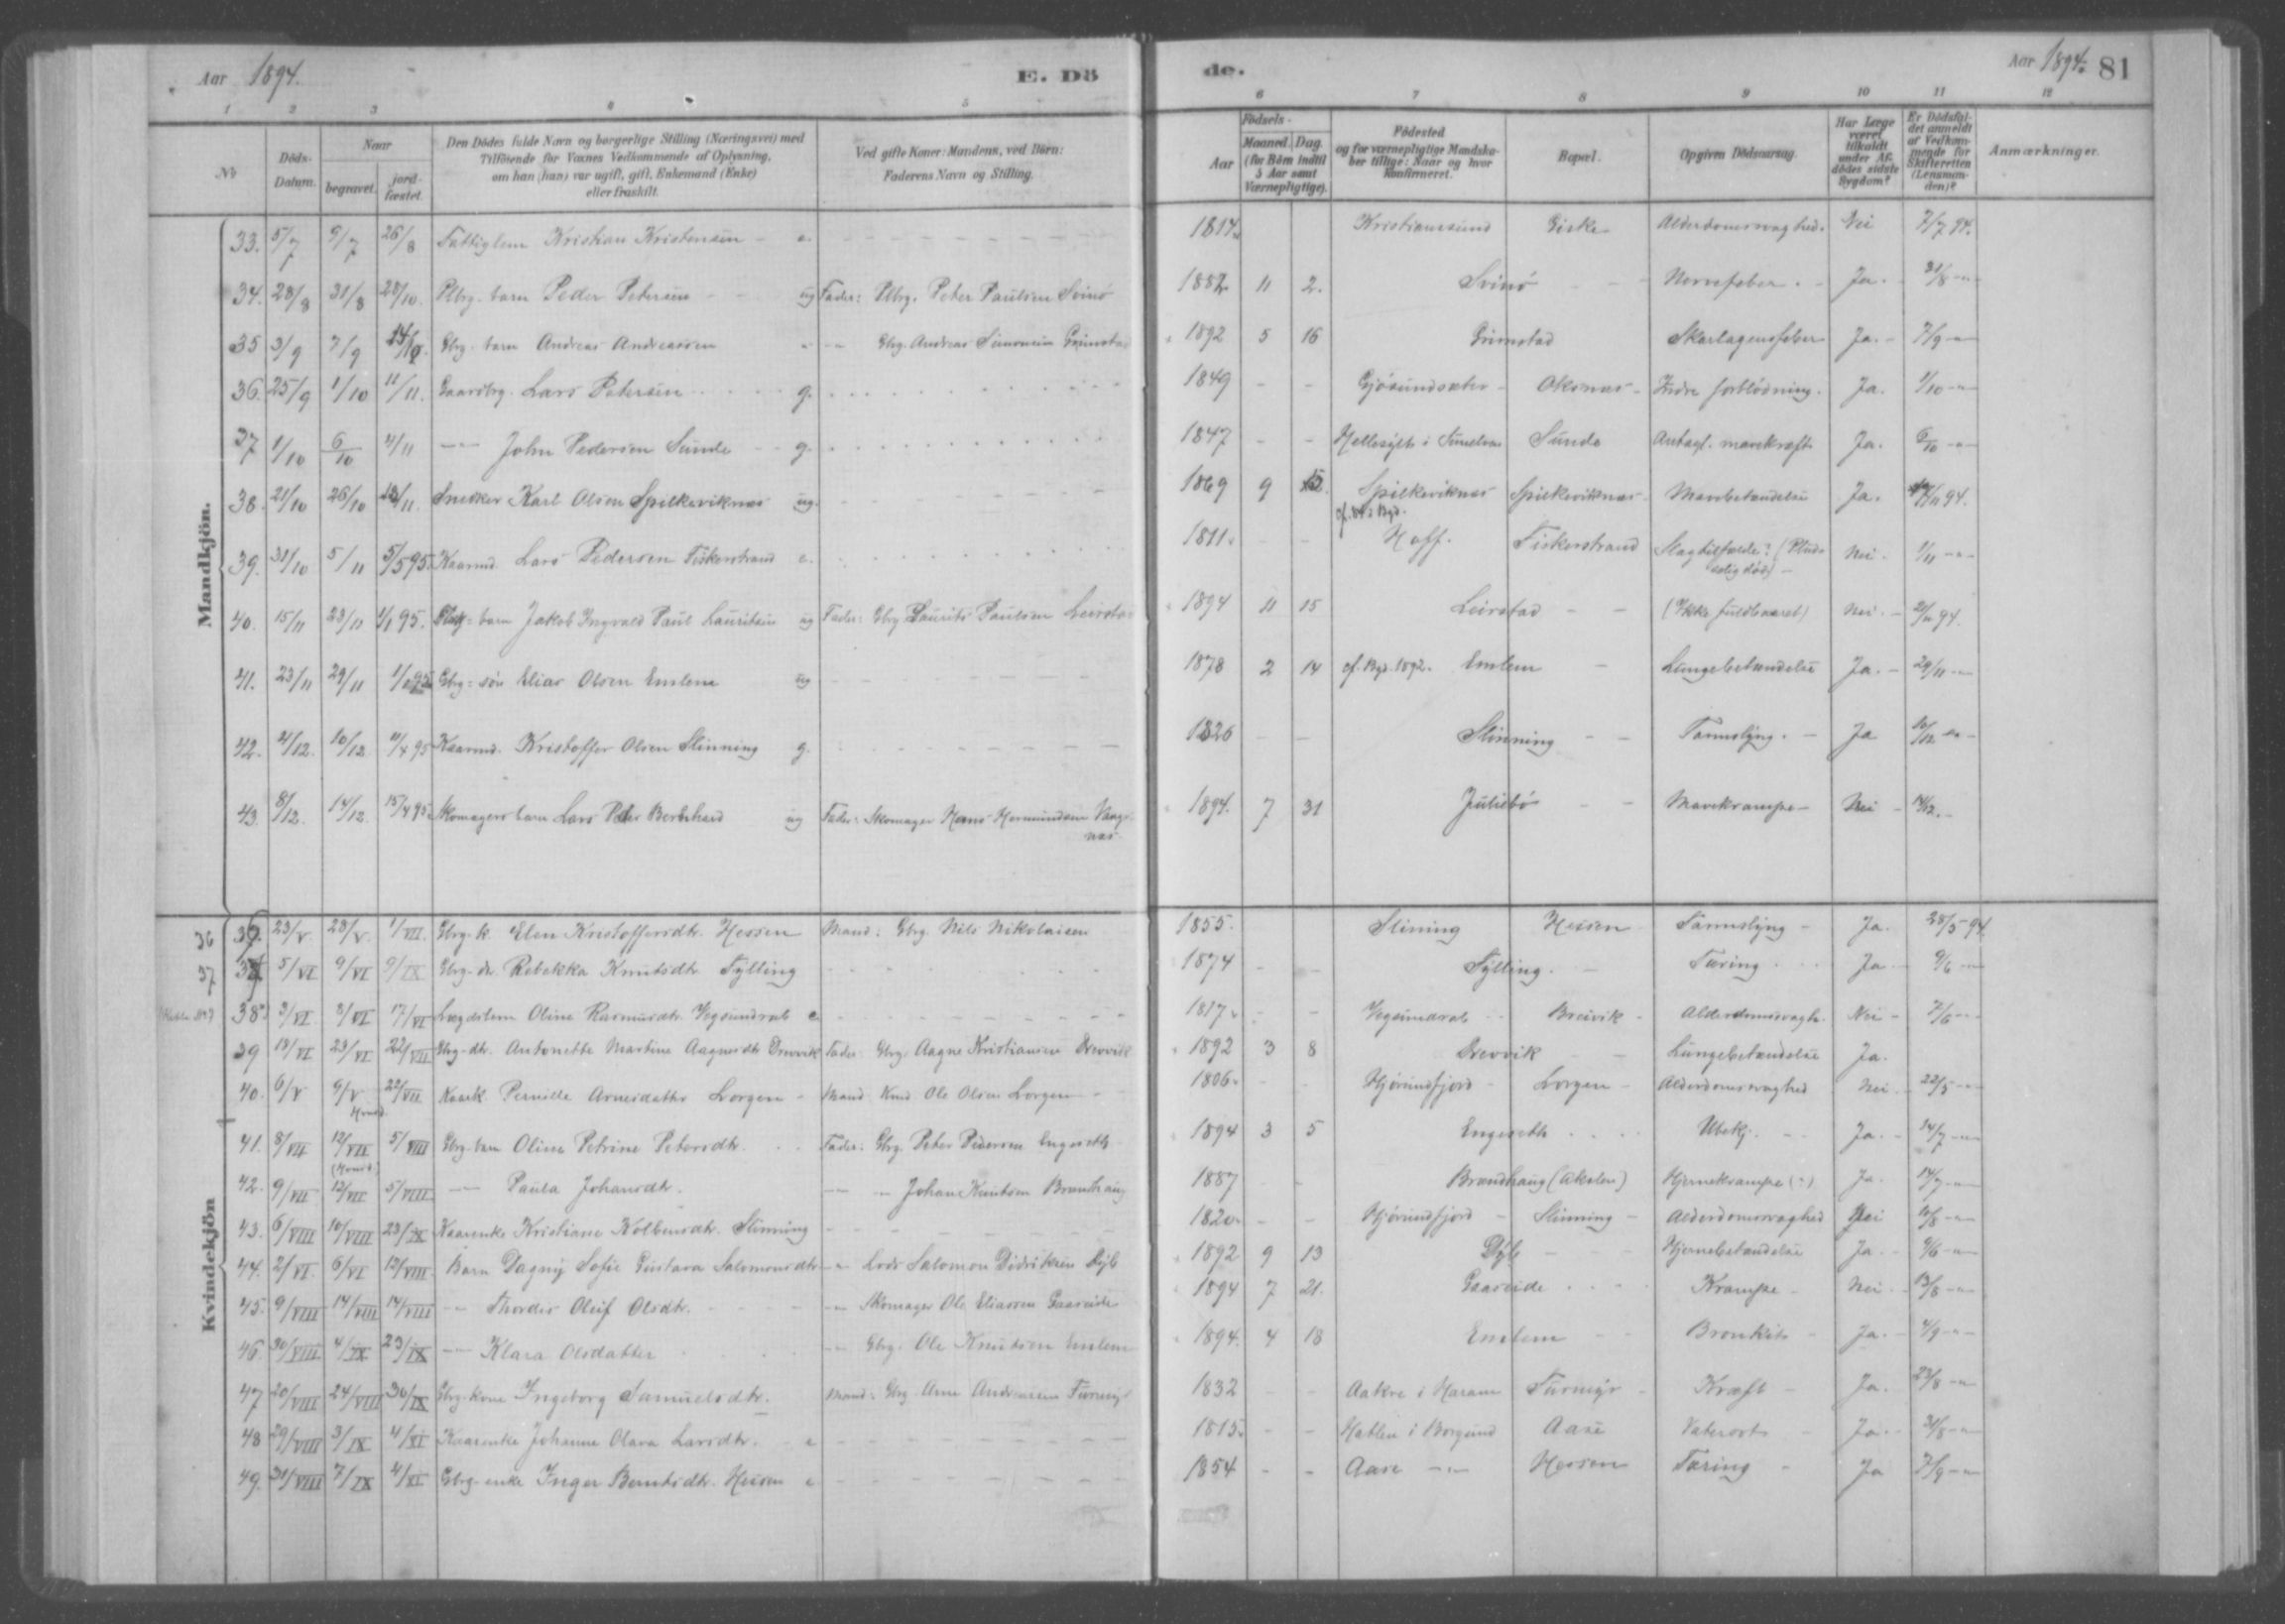 Aar 1894. E. Dö de. Aar 1894. 81
1 2 3 4 5 6 7 8 9 10 11 12
No Döds-Datum. Naar begravet. jord-fæstet. Den Dödes fulde Navn og borgerlige Stilling (Næringsvei) med Tilföiende for Voxnes Vedkommende af Oplysning, om han (hun) var ugift, gift, Enkemand (Enke) eller fraskilt. Ved gifte Koner: Mandens, ved Börn: Faderens Navn og Stilling. Aar Födsels- Maaned. Dag. (for Börn indtil 5 Aar samt Værnepligtige). Födested og for værnepligtige Mandska-ber tillige: Naar og hvor Konfirmeret. Bopæl. Opgiven Dödsaarsag. Har Læge været tilkaldt under Af-dödes sidste Sygdom? Er Dödsfal-det anmeldt af Vedkom-mende for Skifteretten (Lensman-den)? Anmærkninger.
Mandkjön.
33. 5/7 9/7 26/8 Fattiglem Kristian Kristensen e. 1817. Kristiansund Giske Alderdomssvaghed. Nei 7/7 94.
34. 28/8 31/8 28/10. Plbg. barn Peder Petersen ug Fader: Plbg. Peter Paulsen Svinö 1882. 11 2. Svinö Nervefeber. Ja. 31/8 -"-
35 3/9 7/9 14/10. Gbrg. barn Andreas Andreassen -"- Gbrg. Andreas Simonsen Grimstad 1892 5 16 Grimstad Skarlagensfeber Ja. 7/9 -"-
36. 25/9 1/10 11/11. Gaardbrg. Lars Petersen g. 1849 - - Gjösundsæter Oksnæs Indre forblödning. Ja. 1/10 -"-
37 1/10 6/10 4/11 -"- John Pedersen Sunde g. 1847 - - Hellesylt i Sunelven Sunde Antagl. mavekræft Ja. 6/10 -"-
38. 21/10 26/10 18/11. Snedker Karl Olsen Spilkeviknæs ug. 1869 9 Spilkeviknæs Spilkeviknæs Mavebetændelse Ja. 94.
39. 31/10 5/11 5/5 95. Kaarmd. Lars Pedersen Fiskerstrand e. 1811. - - Hoff. Fiskerstrand Slagtilfælde? (Pluds selig död) Nei. 1/11 -"-
40. 15/11 23/11 1/1 95. Gbrg. barn Jakob Ingvald Paul Lauritsen ug Fader: Gbrg Laurits Paulsen Leirstad 1894 11 15 Leirstad (Ikke fuldbaaret) Nei. 21/11 94.
41. 23/11 29/11 Gbrg. sön Elias Olsen Emlem ug 1878 2 14 cf. Bgd. 1892. Emlem Lungebetændelse Ja. 29/11 -"-
42. 4/12. 10/12 11/4 95 Kaarmd. Kristoffer Olsen Slinning g. 1826 - - Slinning Tarmslyng. Ja 10/12 -"-
43. 8/12. 14/12. 15/4 95. Skomagers barn Lars Peder Bernhard ug Fader: Skomager Hans Hermundsen Vaags-næs. 1894. 7 31 Juliebö Mavekrampe Nei 14/12.
Kvindekjön
36 23/V 28/V. 1/VII. Gbrg. k. Elen Kristoffersdtr. Hessen Mand: Gbrg. Nils Nikolaisen 1855. Slinning Hessen Tarmslyng Ja. 28/5 94.
37 5/VI 9/VI 9/IX Gbrg. dr. Rebekka Knutsdtr. Tylling 1874 - - Tylling. Tæring Ja 9/6 -"-
38 3/VI 17/VI Lægdslem Oline Rasmusdtr. Vegsundsæt e. 1817. - - Vegsundsæt Breivik Alderdomssvagh. Nei 7/6 -"-
39 18/VI 23/VI 22/VII Gbrg. dtr. Antonette Martine Aagnesdtr Drevvik Fader Gbrg. Aagne Kristiansen Drevvik 1892 3 8 Drevvik Lungebetændelse Ja.
40. 6/V 9/V 22/VII Kaark. Pernille Arnesdatter Lorgen Mand. Kmd. Ole Olsen Lorgen 1806. - - Hjörundfjord Lorgen Alderdomssvaghed Nei. 22/5 -"-
41. 8/VII 12/VII 5/VIII Gbrg. barn Oline Petrine Petersdtr. Fader: Gbrg. Peter Pedersen Engeseth 1894 3 5 Engeseth Ubekj. Ja. 14/7 -"-
42. 9/VII 12/VII 5/VIII -"- Paula Johansdtr. -"- Johan Knutsen Brandhaug 1887 - - Brandhaug (Akslen) Hjernekrampe (?) Ja. 14/7 -"-
43. 6/VIII 10/VIII 23/IX Kaarenke Kristiane Kolbensdtr. Slinning 1820. - - Hjörundfjord Slinning Alderdomssvaghed Nei 10/8 -"-
44. 2/VI. 6/VI 12/VIII Barn Dagny Sofie Gustava Salomonsdtr. -"- Lods Salomon Didriksen Dyb 1892 9 13 Dyb Hjernebetændelse Ja. 9/6 -"-
45. 9/VIII 14/VIII 14/VIII -"- Thordis Oleif Olsdtr. -"- Skomager Ole Eliassen Gaaseide 1894 7 21. Gaaseide Krampe Nei 13/8 -"-
46. 30/VIII 4/IX 23/IX -"- Klara Olsdatter -"- Gbrg. Ole Knutsen Emlem 1894. 4 18 Emlem Bronkit Ja. 4/9 -"-
47 20/VIII 24/VIII 30/IX Gbrg. kone Ingeborg Samuelsdtr. Mand: Gbrg. Arne Andreassen Furmyr 1832 - - Aakre i Haram Furmyr Kræft Ja. 23/8 -"-
48 29/VIII 3/IX 4/XI Kaarenke Johanne Olava Larsdtr. e 1815. - - Hatlen i Borgund Aase Vatersot Ja. 31/8 -"-
49. 31/VIII 7/IX 4/XI Gbrg. enke Inger Berntsdtr. Hessen e 1854 - - Aase -"- Hessen Tæring Ja 7/9 -"-